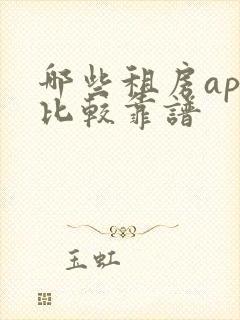 哪些租房ap
比较靠譜
玉虹